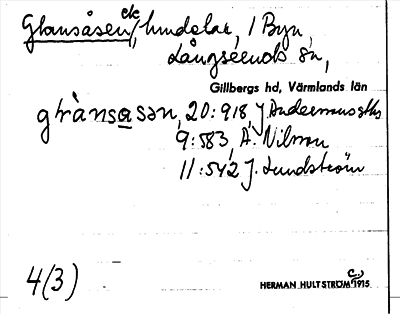 Glansåsen etc, hmdelar, i Byn,
Långseruds sn,
Gillbergs hd, Värmlands län
gràǹsa̲sən, 20:918, J. Andersson gtks
9:583, A. Nilsson
11:542 J. Lundström
4(3)
HERMAN HULTSTRÖM c. 1915